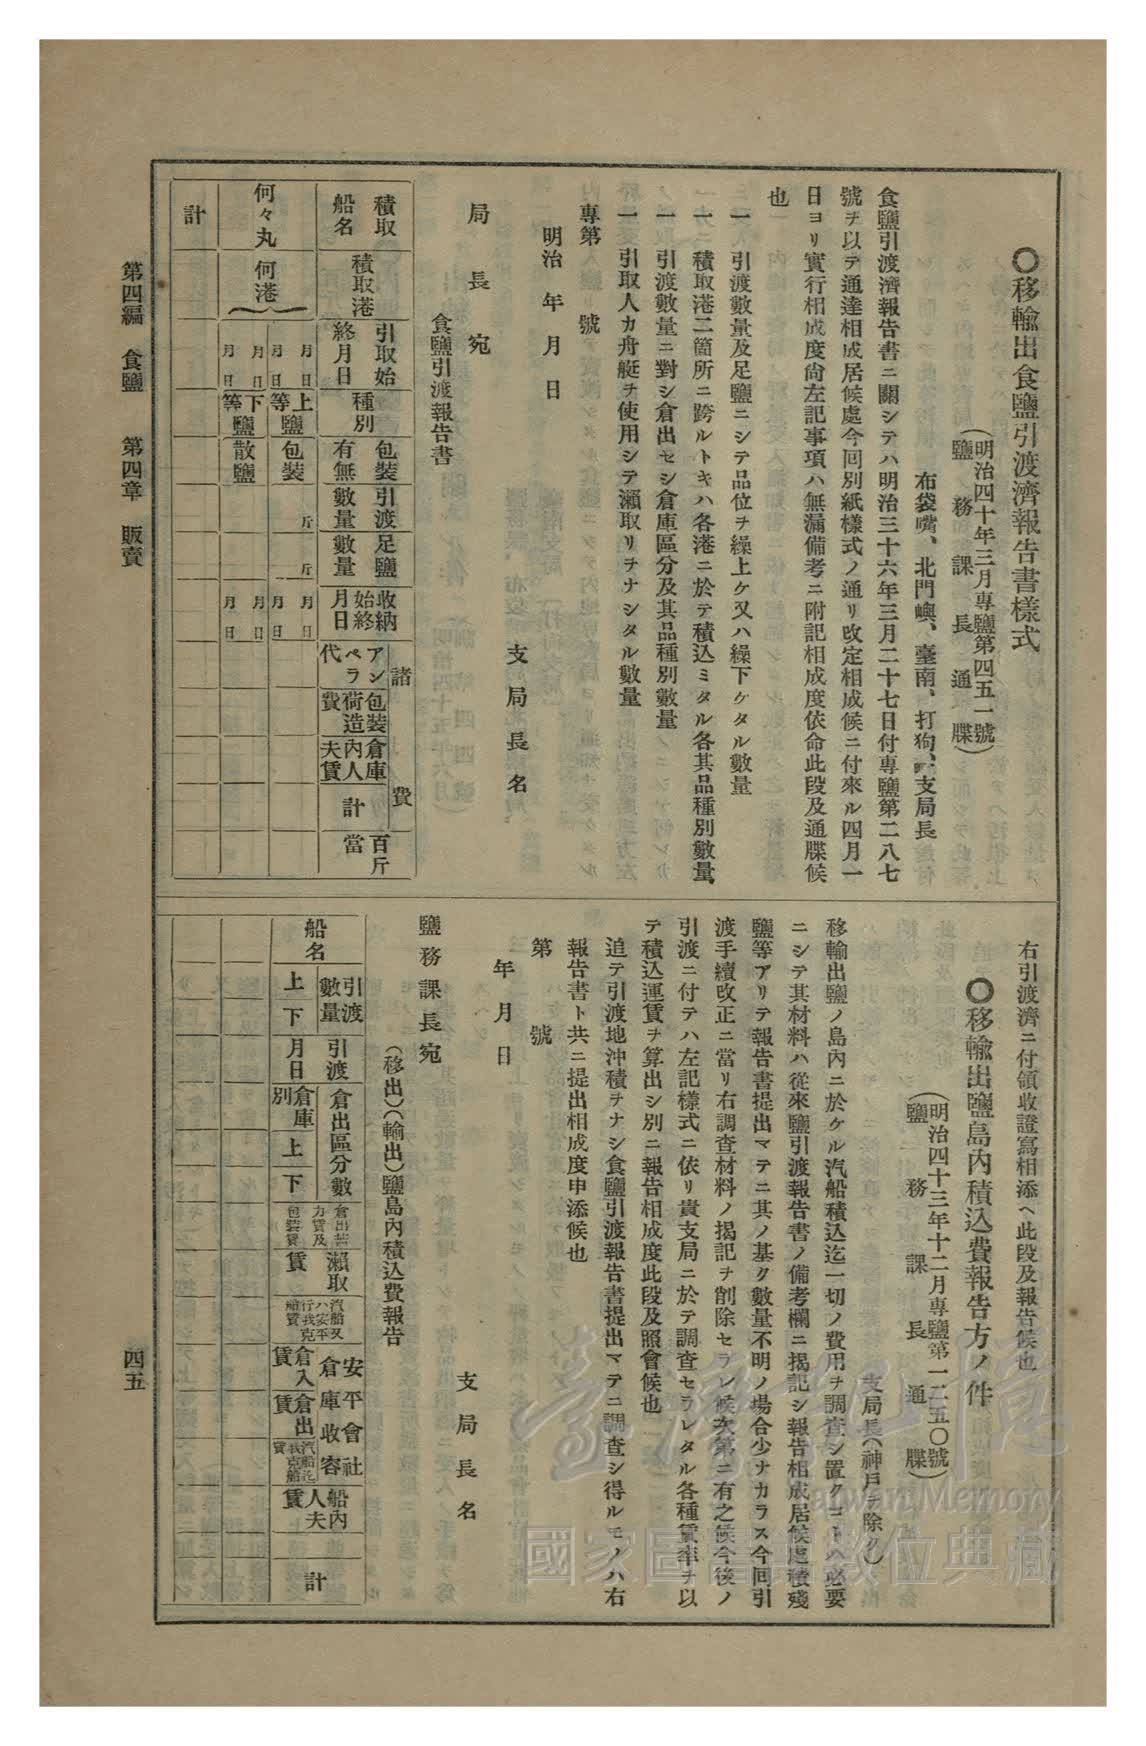 ◯移輸出食鹽引渡濟報告書樣式
(明治四十年三月專鹽第四五一號
鹽務課長通牒)
布袋嘴、北門嶼、臺南、打狗、支局長
食鹽引渡濟報告書ニ關シテハ明治三十六年三月二十七日付專鹽第二八七
號ヲ以テ通達相成居候處今回別紙樣式ノ通リ改定相成候ニ付來ル四月一
日ヨリ實行相成度尙左記事項ハ無漏備考ニ附記相成度依命此段及通牒候
也
一 引渡數量及足鹽ニシテ品位ヲ繰上ケ又ハ繰下ケタル數量
一 積取港二箇所ニ跨ルトキハ各港ニ於テ積込ミタル各其品種別數量
一 引渡數量ニ對シ倉出セシ倉庫區分及其品種別數量
一 引取人カ舟艇ヲ使用シテ瀨取リヲナシタル數量
專第 號
明治 年 月 日
支局長名
局長宛
食鹽引渡報告書
積取船名 何々丸 計
積取港 何港
引取始終月日 月日 月日 月日 月日
種別 上等鹽 下等鹽
包裝有無 包裝 散鹽
引渡數量 斤
足鹽數量 斤
收納始終月日 月日 月日 月日 月日
諸費
アンペラ代
包裝荷造費
倉庫內人夫賃
計
百斤當
右引渡濟ニ付領收證寫相添ヘ此段及報告候也
◯移輸出鹽島內積込費報告方ノ件
(明治四十三年十二月專鹽第一二五〇號
鹽務課長通牒)
支局長(神戶ヲ除ク)
移輸出鹽ノ島內ニ於ケル汽船積込迄一切ノ費用ヲ調查シ置クコトハ必要
ニシテ其材料ハ從來鹽引渡報告書ノ備考欄ニ揭記シ報告相成居候處積殘
鹽等アリテ報告書提出マテニ其ノ基ク數量不明ノ場合少ナカラス今回引
渡手續改正ニ當リ右調查材料ノ揭記ヲ削除セラレ候次第ニ有之候今後ノ
引渡ニ付テハ左記樣式ニ依リ貴支局ニ於テ調查セラレタル各種賃率ヲ以
テ積込運賃ヲ算出シ別ニ報告相成度此段及照會候也
追テ引渡地沖積ヲナシ食鹽引渡報告書提出マテニ調查シ得ルモノハ右
報告書ト共ニ提出相成度申添候也
第 號
年 月 日
支局長名
鹽務課長宛
(移出)(輸出)鹽島內積込費報告
船名
引渡數量 上 下
引渡月日
倉出區分數 倉庫別 上 下
倉出苦力賃及包裝賃
瀨取賃
汽船又ハ安平行我克船賃
安平會社倉庫收容 倉入賃 倉出賃 汽船迄我克船賃
船內人夫賃
計
第四編 食鹽 第四章 販賣
四五
臺灣記憶
Taiwan Memory
國家圖書館數位典藏